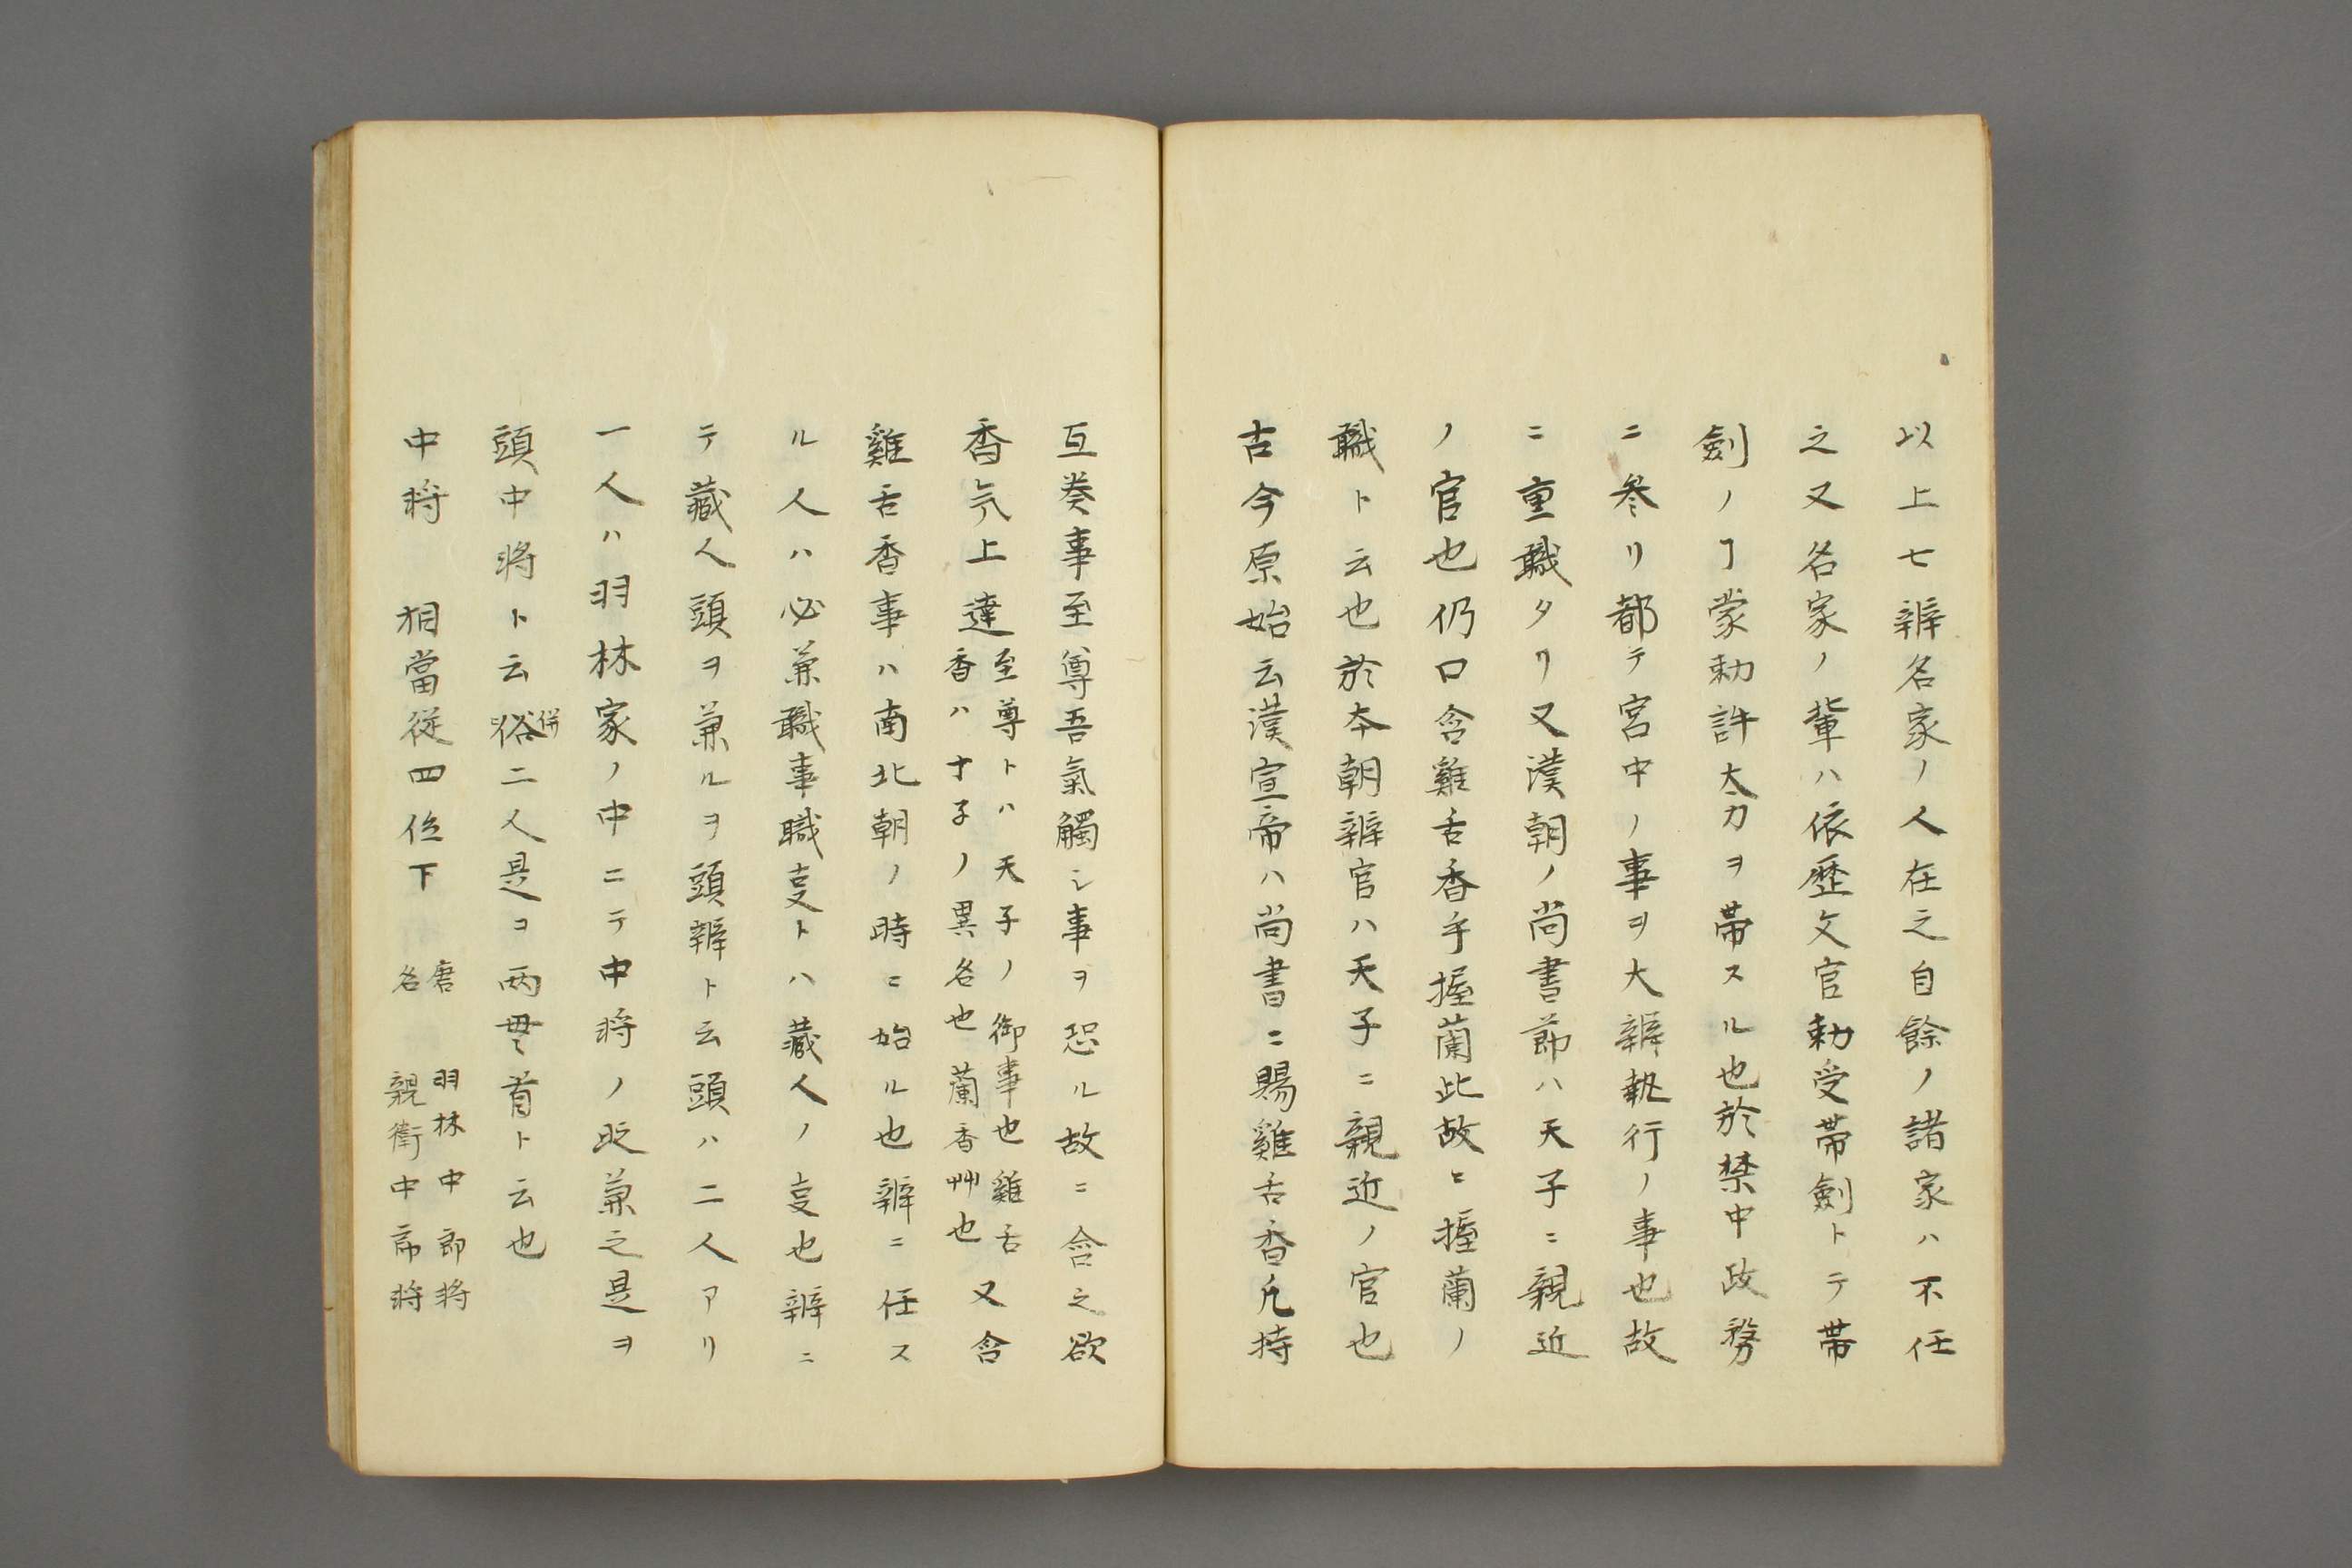 以上七辨名家ノ人在之自餘ノ諸家ハ不任
之又名家ノ輩ハ依歴文官勅受帯劍トテ帯
劍ノヿ蒙勅許太刀ヲ帯スル也於禁中政務
ニ参リ都テ宮中ノ事ヲ大辨執行ノ事也故
ニ重職タリ又漢朝ノ尚書節ハ天子ニ親近
ノ官也仍口含雞舌香手握蘭此故ニ握蘭ノ
職ト云也於本朝辨官ハ天子ニ親近ノ官也
古今原始云漢宣帝ハ尚書ニ賜雞舌香凡持
互奏事至尊吾氣觸シ事ヲ恐ル故ニ含之欲
香気上達
至尊トハ天子ノ御事也雞舌
香ハ丁子ノ異名也蘭香艸也
又含
雞舌香事ハ南北朝ノ時ニ始ル也辨ニ任ス
ル人ハ必兼職事職叓トハ藏人ノ叓也辨ニ
テ藏人頭ヲ兼ルヲ頭辨ト云頭ハ二人アリ
一人ハ羽林家ノ中ニテ中将ノ内兼之是ヲ
頭中将ト云俗併ニ二人是コ両貫首ト云也
中将 相當従四位下 唐名
羽林中郎将
親衛中郎将